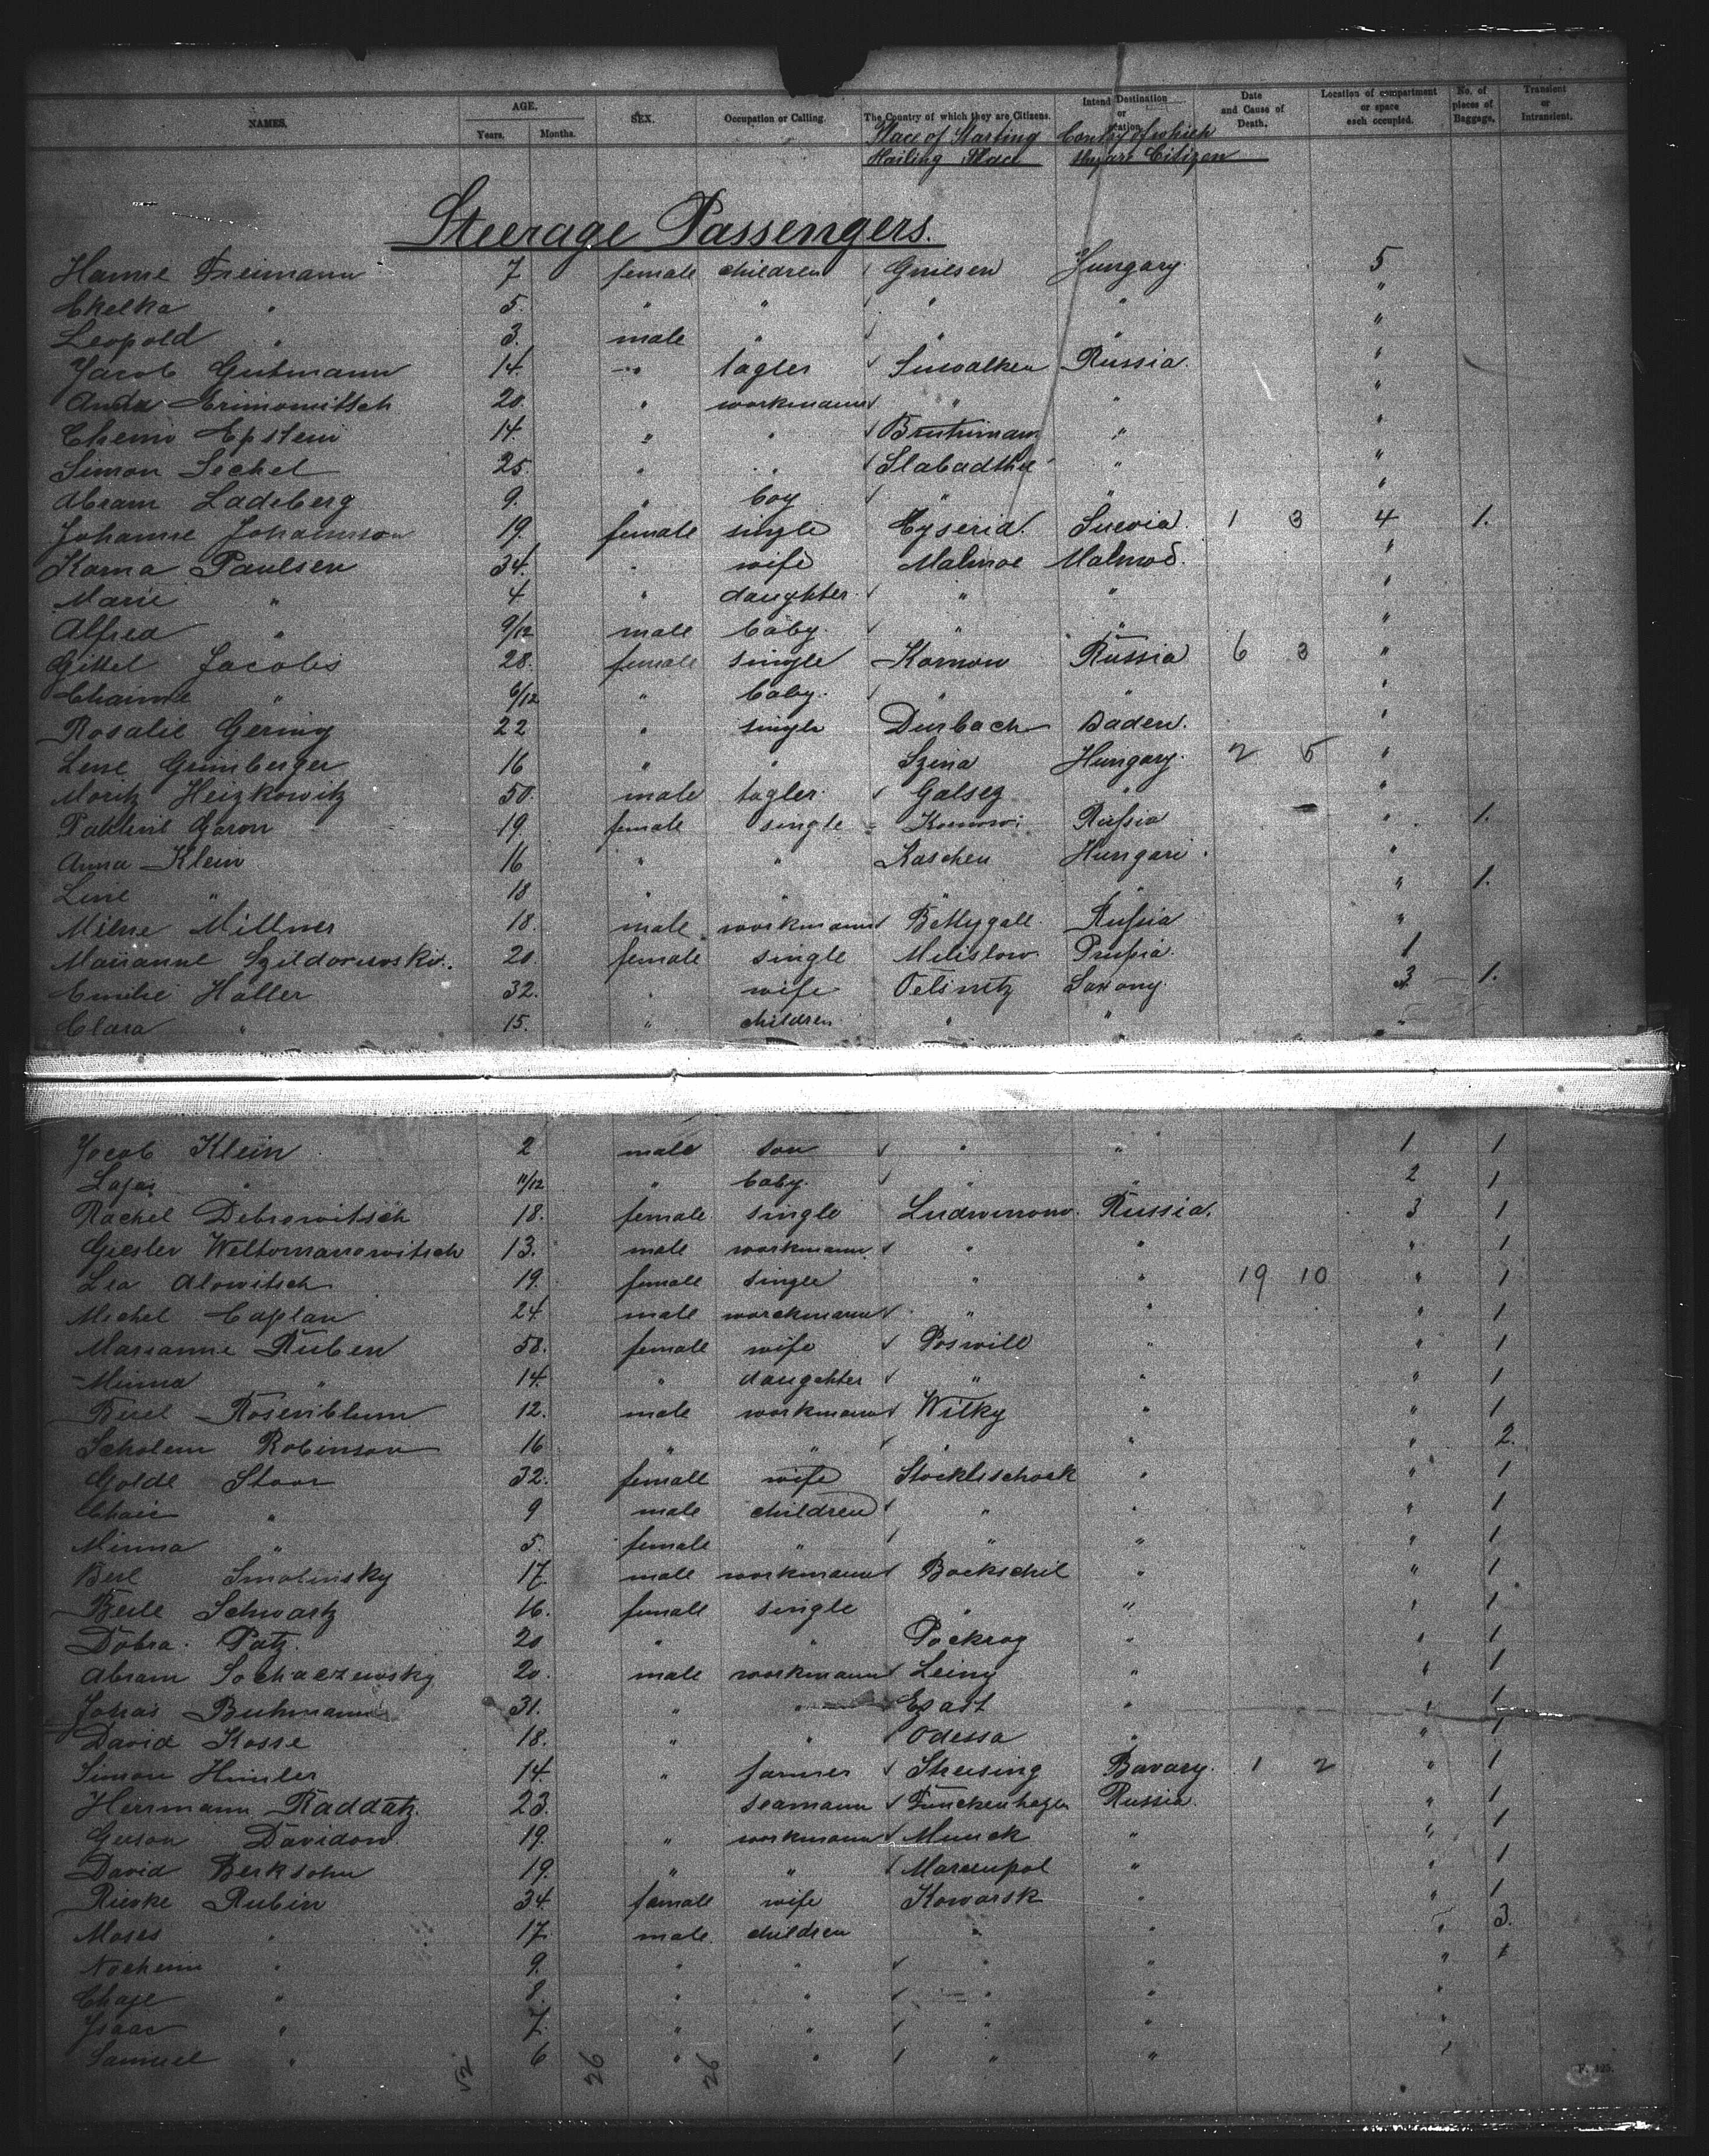 NAMES. AGE. Years. Months. SEX. Occupation or Calling. The Country of which they are Citizens. Intend Destination or Location. Date and Cause of Death. Location of compartment or space each occupied. No. of pieces of Baggage. Transient or Intransient.
Place of Starting Contry of which
Hailing Place they are Citizen
Steerage Passengers.
Hanne Freimann 7 female children Gnilsen Hungary. 5
Ekelka " 5. " " " " "
Leopold " 3. male " " " "
Jacob Gutmann 14. " tagler Suwalken Russia. "
Erimowitsch 20. " workmann " " "
Epstein 14. " " " "
Simon Sechel 25. " " " "
Abram Ladeberg 9. " boy " " "
Johanne Johannson 19. female single Suevia. 1 3 4 1.
Karna Paulsen 34. " wife Malmoe Malmoe. "
Marie " 4 " daughter. " " "
Alfred " 9/12 male baby. " " "
Gittel Jacobs 28. female single Kornow Russia 6 3 "
Channe " 6/12 " baby. " " "
Rosalie Gering 22 " single Durbach Baden. "
Lene Grünberger 16 " " Szina Hungary. 2 5 "
Moritz Herzkowitz 50. male tagler. Galsez " "
Garon 19. female single Russia " 1.
Anna Klein 16 " " Kaschen Hungari. "
Lene " 18 " " " " " 1.
Milne Millner 18. male workmann Bettygall. Russia "
Marianne 20. female single Milislow Prussia. 1
Emilie Haller 32. " wife Oelsnitz Saxony. 3. 1.
Clara " 15. " children " " "
Jacob Klein 2 male son " " 1 1
" 11/12 " baby. " " 2 1
Rachel Debrowitsch 18. female single Russia. 3 1
Weltomanowitsch 13. male workmann " " " 1
Lea Alowitsch 19. female single " " 19 10 " 1
Michel Caplan 24. male worckmann " " " 1
Marianne Ruben 58. female wife Poswill " " 1
Minna " 14. " daugchter " " " 1
Berel Rosenblum 12. male workmann Wilky " " 1
Scholem Robinson 16. " " " " " 2.
Golde Stoor 32. female wife Stocklischock " " 1
" 9 male children " " " 1
Minna " 5. female " " " " 1
Berl Smolinsky 17. male workmann Bockschil " " 1
Beile Schwartz 16. female single " " " 1
Dobra. Patz. 20 " " Pockrog " " 1
Abram Sochaczewsky 20. male workmann Leiny " " 1
Johas Buhmann 31. " " " " 1
David Kosse 18. " " Odessa " " 1
Simon Himler 14. " farmer Streising Bavary. 1 2 " 1
Herrmann Raddatz. 23. seamann Funckenhagen Russia. " 1
Gerson Davidow 19. " workmann Munck " " 1
David Berksohn 19. " " Mareupol " " 1
Riewke Rubin 34. female wife Kowarsk " " 1
Moses " 17. male. children " " " 3.
Nochem " 9. " " " " " 1
Chaje " 8. " " " " "
Isaac " 7. " " " " "
Samuel " 6 " " " " "
52 26 26